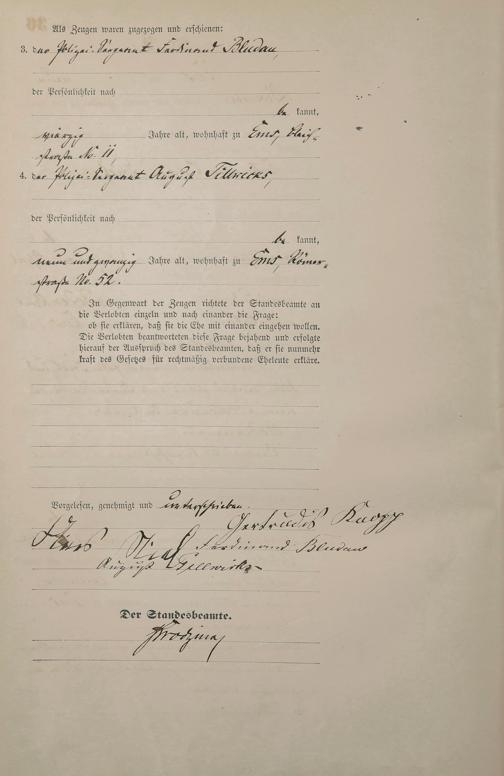 Als Zeugen waren zugezogen und erschienen:
3. der Polizei-Sergeant Ferdinand Bludau,
der Persönlichkeit nach
be kannt,
vierzig Jahre alt, wohnhaft zu Ems, Bleich-
straße No. 11,
4. der Polizei-Sergeant August Tillwicks,
der Persönlichkeit nach
be kannt,
neun und zwanzig Jahre alt, wohnhaft zu Ems, Römer-
straße No. 52.
In Gegenwart der Zeugen richtete der Standesbeamte an
die Verlobten einzeln und nach einander die Frage:
ob sie erklären, daß sie die Ehe mit einander eingehen wollen.
Die Verlobten beantworteten diese Frage bejahend und erfolgte
hierauf der Ausspruch des Standesbeamten, daß er sie nunmehr
kraft des Gesetzes für rechtmäßig verbundene Eheleute erkläre.
Vorgelesen, genehmigt und unterschrieben.
Gertrudis Knopp
Ferdinand Bludau
August Tillwicks
Der Standesbeamte.